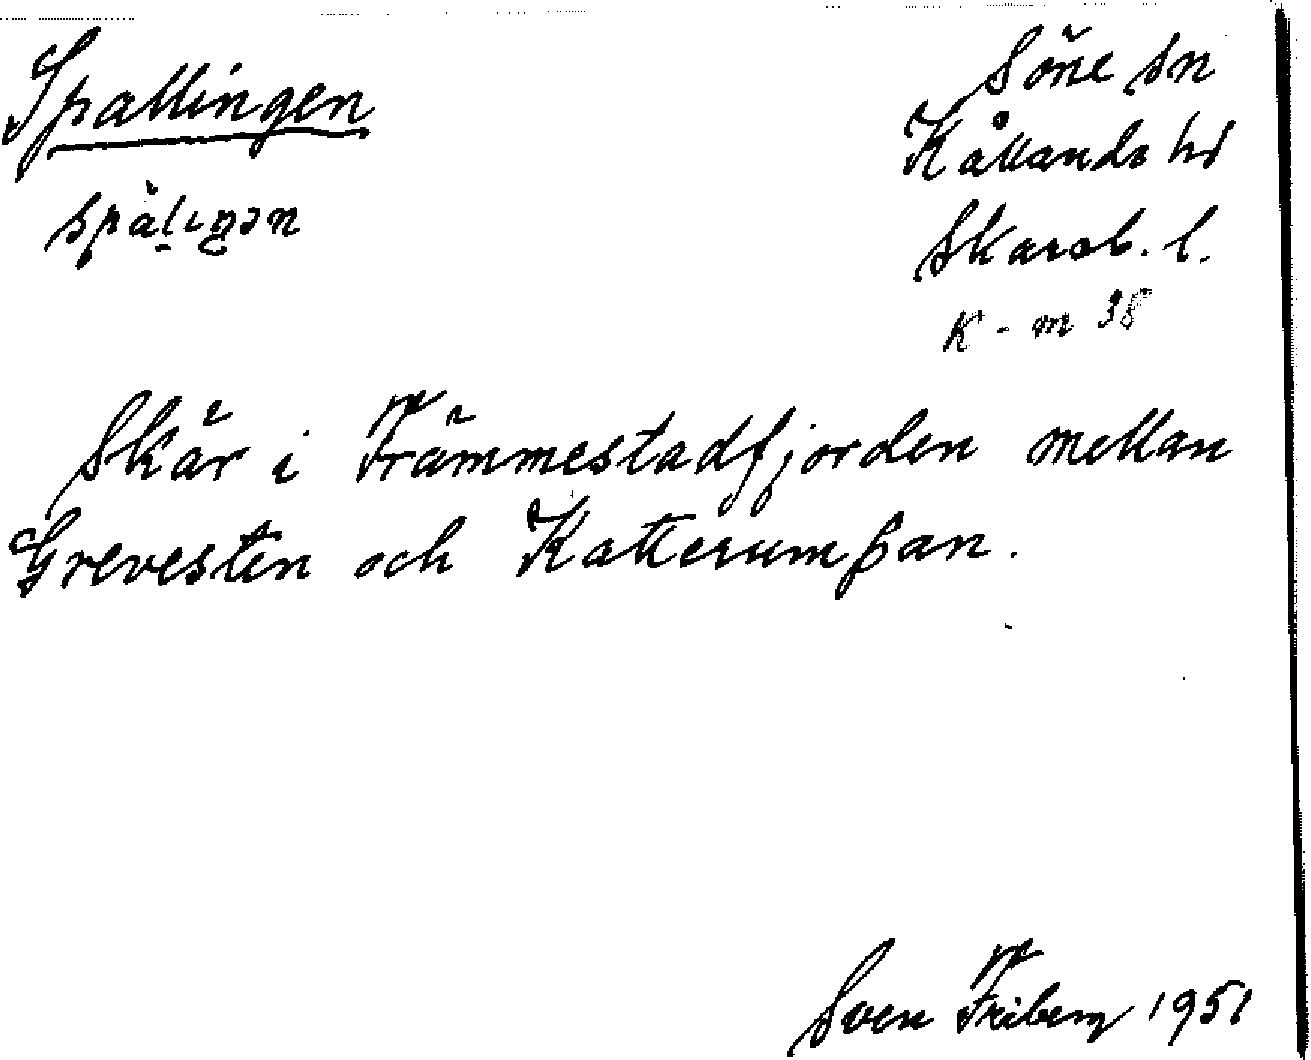 Spallingen
Söne sn
Kållands hd
Skarab. l.
K - m 38
Skär i Främmestadfjorden mellan
Grevesten och Katterumpan.
Sven Friberg 1951